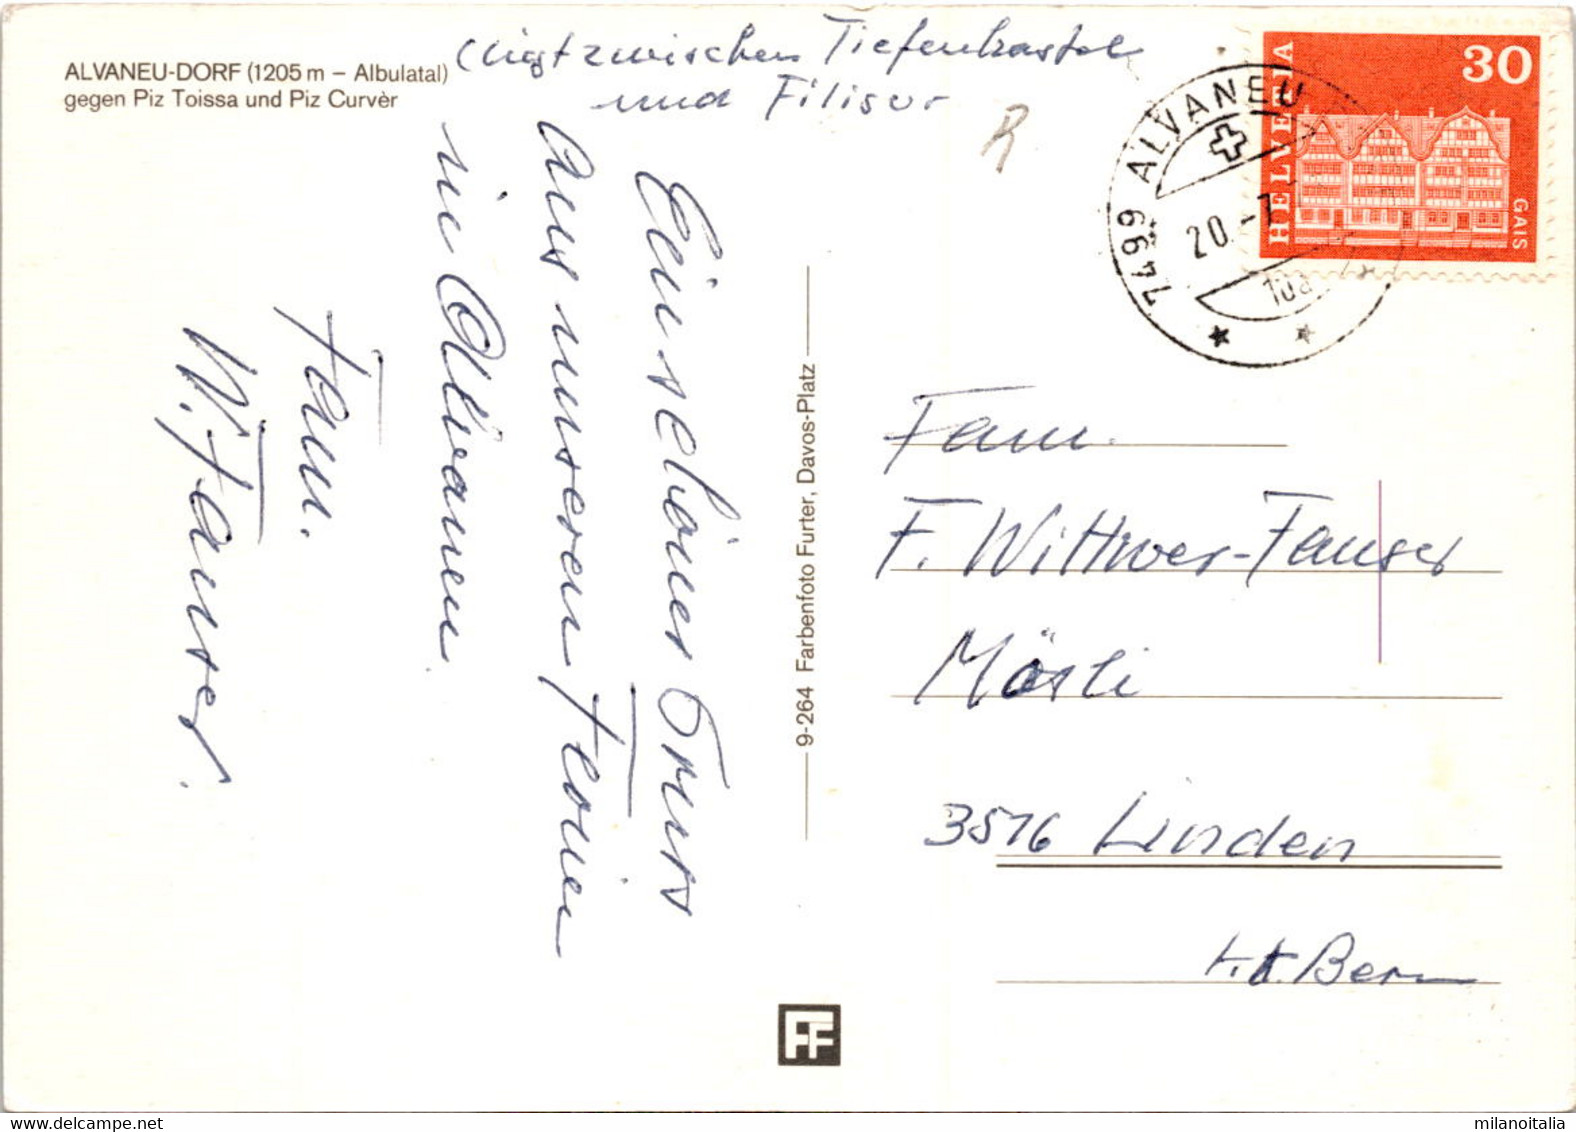 ALVANEU-DORF (1205 m – Albulatal)
gegen Piz Toissa und Piz Curvèr
(liegt zwischen Tiefenkastel
und Filisur
R
Ein schöner Gruss
aus unseren Ferien
in Alvaneu
Fam.
W. Fauser.
9-264 Farbenfoto Furter, Davos-Platz
FF
7499 ALVANEU
20.-7
10a
HELVETIA
30
GAIS
Fam.
F. Wittwer-Fauser
Mösli
3516 Linden
Kt. Bern
milanoitalia